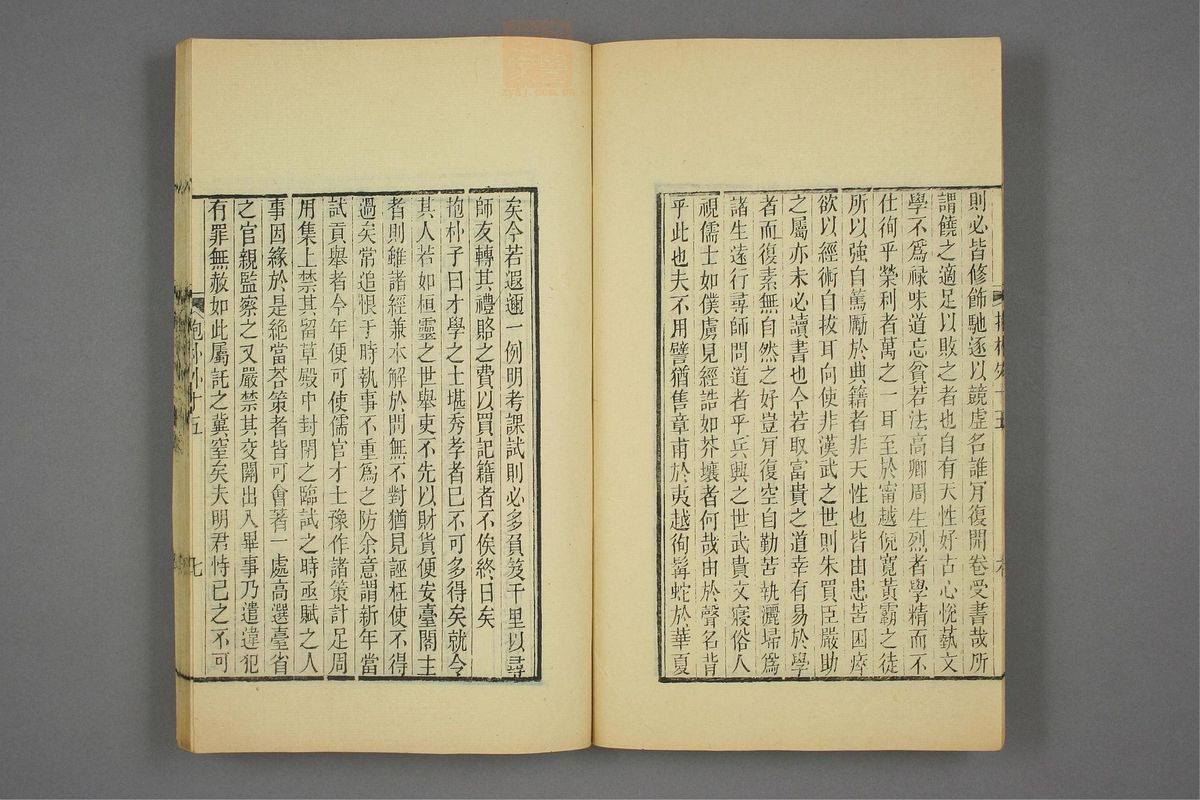 則必皆修飾馳逐以競虛名誰肎復開卷受書哉所
謂饒之適足以敗之者也自有天性好古心悅藝文
學不爲禄味道忘貧若法高卿周生烈者學精而不
仕徇乎榮利者萬之一耳至於甯越倪寬黃霸之徒
所以強自篤勵於典籍者非天性也皆由患苦困瘁
欲以經術自拔耳向使非漢武之世則朱買臣嚴助
之屬亦未必讀書也今若取富貴之道幸有易於學
者而復素無自然之好豈肎復空自勤苦執灑埽爲
諸生遠行尋師問道者乎兵興之世武貴文寑俗人
視儒士如僕虜見經誥如芥壤者何哉由於聲名背
乎此也夫不用譬猶售章甫於夷越徇髯蛇於華夏
矣今若遐邇一例明考課試則必多負笈千里以尋
師友轉其禮賂之費以買記籍者不俟終日矣
抱朴子曰才學之士堪秀孝者已不可多得矣就令
其人若如桓靈之世舉吏不先以財貨便安臺閣主
者則雖諸經兼本解於問無不對猶見誣枉使不得
過矣常追恨于時執事不重爲之防余意謂新年當
試貢舉者今年便可使儒官才士豫作諸策計足周
用集上禁其留草殿中封閉之臨試之時亟賦之人
事因緣於是絶當荅策者皆可會著一處高選臺省
之官親監察之又嚴禁其交關出入畢事乃遣違犯
有罪無赦如此屬託之冀窒矣夫明君恃己之不可
抱朴外十五
七